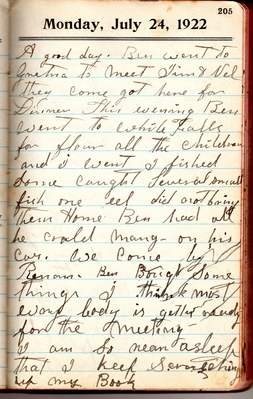 205
Monday, July 24, 1922
A good day. Ben went to
to meet Jim & Vel
they come got here for
Dinner This evening Ben
went to white Falls
for flour all the children
and i went I fished
Some caught Several small
fish one eel did not bring
them Home Ben had all
he could mang on his
car. we come by
Renam. Ben Bought Some
things I think most
every body is getting ready
for the Meeting
i am So near asleep
that I keep
up my Book